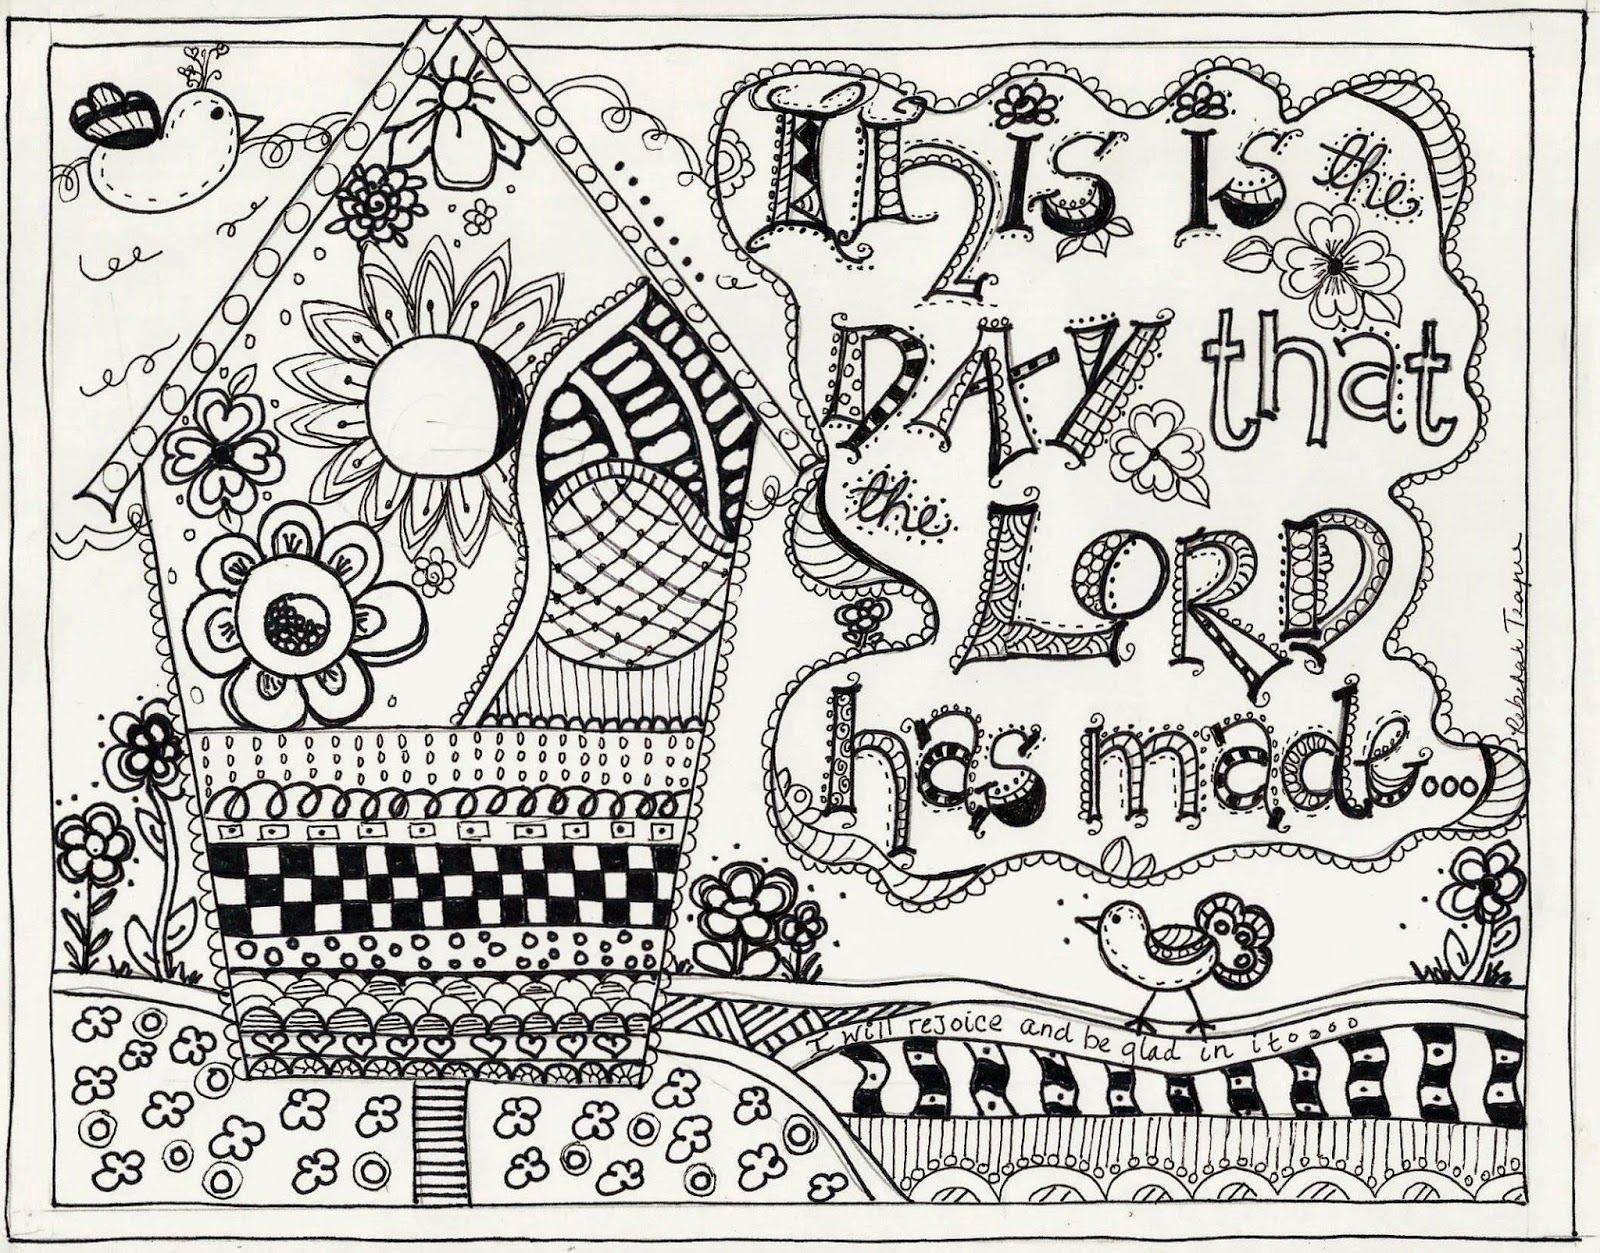 This is the
DAY that
the LORD
has made...ooo
I will rejoice and be glad in it oooo
Rebekah Teague